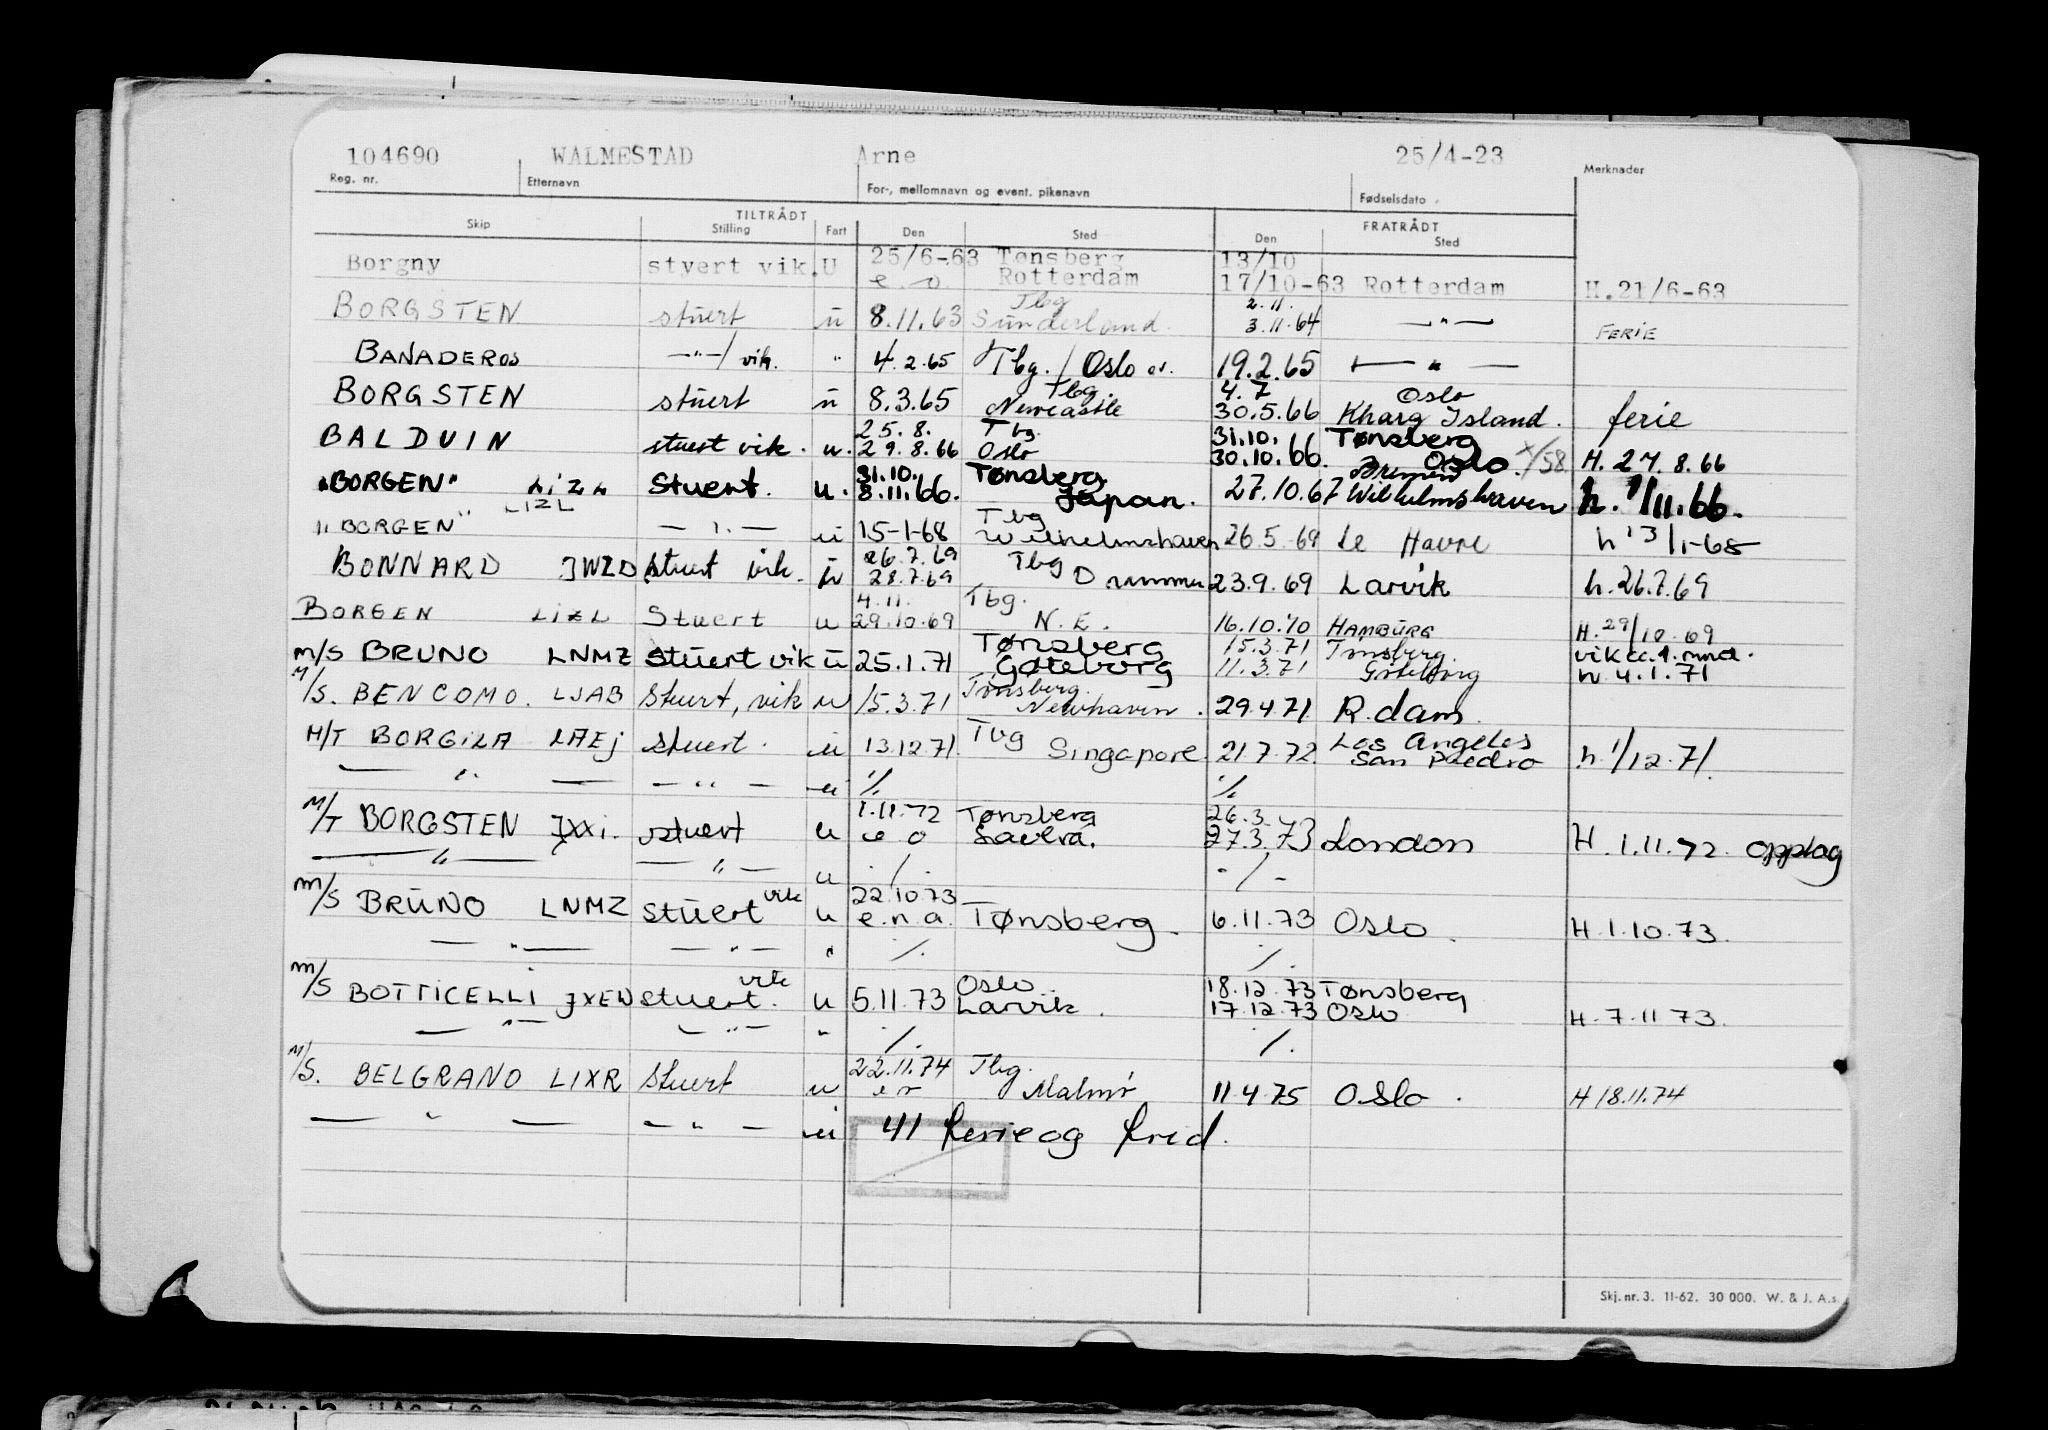 104690 WALMESTAD Arne 25/4-23
Reg. nr. Etternavn For-, mellomnavn og event. pikenavn Fødselsdato Merknader
TILTRÅDT FRATRÅDT
Skip Stilling Fart Den Sted Den Sted
Borgny styert vik. U 25/6-63 Tønsberg 13/10
e.o. Rotterdam 17/10-63 Rotterdam H.21/6-63
BORGSTEN stuert u 8.11.63 Tbg Sunderland. 2.11. 3.11.64 —"— FERIE
BANADEROS —"—/vik. " 4.2.65 Tbg./Oslo 19.2.65 — " —
BORGSTEN stuert u 8.3.65 Tbg. Newcastle 4.7 30.5.66 Oslo Kharg Island. ferie
BALDUIN stuert vik. u. 25.8. 29.8.66 Tbg. Oslo 31.10. 30.10.66. Tønsberg Oslo. x/58 H. 24.8.66
"BORGEN" LIZL Stuert. u. 31.10. 8.11.66. Tønsberg Japan. 27.10.67 Bremen Wilhelmshaven h. 1/11.66.
"BORGEN" LIZL — " — u 15-1-68 Tbg Wilhelmshaven 26.5.69 Le Havre h 13/1-68
BONNARD JWZD stuert vik. u 26.7.69 28.7.69 Tbg Drammen 23.9.69 Larvik h. 26.7.69
BORGEN LIZL Stuert u 4.11. 29.10.69 Tbg. N.E. 16.10.70 HAMBURG H. 29/10.69
M/S BRUNO LNMZ stuert vik u 25.1.71 Tønsberg Gøteborg 15.3.71 11.3.71 Tønsberg Göteborg vik cc. 1. mnd. h 4.1.71
M/S. BENCOMO. LJAB Stuert, vik u 15.3.71 Tønsberg. Newhaven. 29.4.71 R.dam.
M/T BORGILA LAEJ stuert. u 13.12.71. Tbg Singapore 21.7.72 Los Angeles San Paedro h. 1/12.71.
— " — — " — u % %
M/T BORGSTEN JXXI. stuert u 1.11.72 e o Tønsberg Savera. 26.3. 27.3.73 London H. 1.11.72. opplag
— " — — " — u ./. -/-
M/S BRUNO LNMZ stuert vik u 22.10.73 e.n.a. Tønsberg. 6.11.73 Oslo. H. 1.10.73.
— " — — " — " ./. ./.
M/S BOTTICELLI JXEN stuert. vik u 5.11.73 Oslo Larvik. 18.12.73 Tønsberg 17.12.73 Oslo H. 7.11 73.
— " — — " — " ./. ./.
M/S. BELGRANO LIXR Stuert u 22.11.74 Tbg. Malmö 11.4.75 Oslo. H 18.11.74
— " — — " — u 41 ferie og fred.
Skj. nr. 3. 11-62. 30 000. W. & J. A.s.